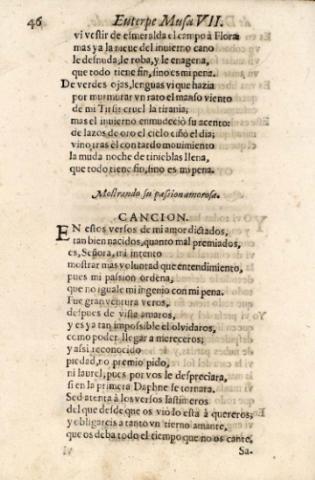 46 Euterpe Musa VII.
vi vestir de esmeralda el campo à Flora
mas ya la nieue del inuierno cano
le desnuda, le roba, y le enagena,
que todo tiene fin, sino es mi pena.
De verdes ojas, lenguas vi que hazia
por murmurar vn rato el manso viento
de mi Tirsis cruel la tirania;
mas el inuierno enmudeciò su acento:
de lazos de oro el cielo ciñò el dia;
vino tras èl con tardo mouimiento
la muda noche de tinieblas llena,
que todo tiene fin, sino es mi pena.
Mostrando su passion amorosa.
CANCION.
EN estos versos de mi amor dictados,
tan bien nacidos, quanto mal premiados,
es, Señora, mi intento
mostrar mas voluntad que entendimiento,
pues mi passion ordena,
que no iguale mi ingenio con mi pena.
Fue gran ventura veros,
despues de vista amaros,
y es ya tan impossible el oluidaros,
como poder llegar a mereceros;
y assi reconocido
piedad, no premio pido,
ni laurel, pues por vos le despreciara,
si en la primera Daphne se tornara.
Sed atenta à los versos lastimeros
del que desde que os viò lo està à quereros;
y obligarèis a tanto vn tierno amante,
que os deba todo el tiempo que no os cante,
Sa-